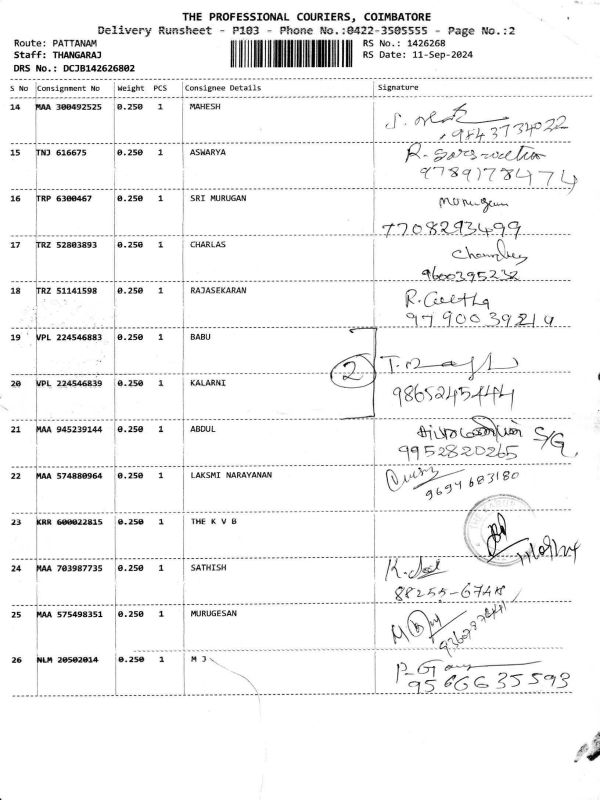 THE PROFESSIONAL COURIERS, COIMBATORE
Delivery Runsheet - P103 - Phone No.:0422-3505555 - Page No.:2
Route: PATTANAM
RS No.: 1426268
Staff: THANGARAJ
RS Date: 11-Sep-2024
DRS No.: DCJB142626802
S No Consignment No Weight PCS Consignee Details Signature
14 MAA 300492525 0.250 1 MAHESH
9843734022
15 TNJ 616675 0.250 1 ASWARYA R.
9789178474
16 TRP 6300467 0.250 1 SRI MURUGAN Murugan
7708293499
17 TRZ 52803893 0.250 1 CHARLAS
9600395232
18 TRZ 51141598 0.250 1 RAJASEKARAN R. Geetha
9790039214
19 VPL 224546883 0.250 1 BABU
2
20 VPL 224546839 0.250 1 KALARNI
9865245444
21 MAA 945239144 0.250 1 ABDUL S/G
9952820265
22 MAA 574880964 0.250 1 LAKSMI NARAYANAN
9694683180
23 KRR 600022815 0.250 1 THE K V B
24 MAA 703987735 0.250 1 SATHISH K.
88255-6748
25 MAA 575498351 0.250 1 MURUGESAN
26 NLM 20502014 0.250 1 M J
9566635593